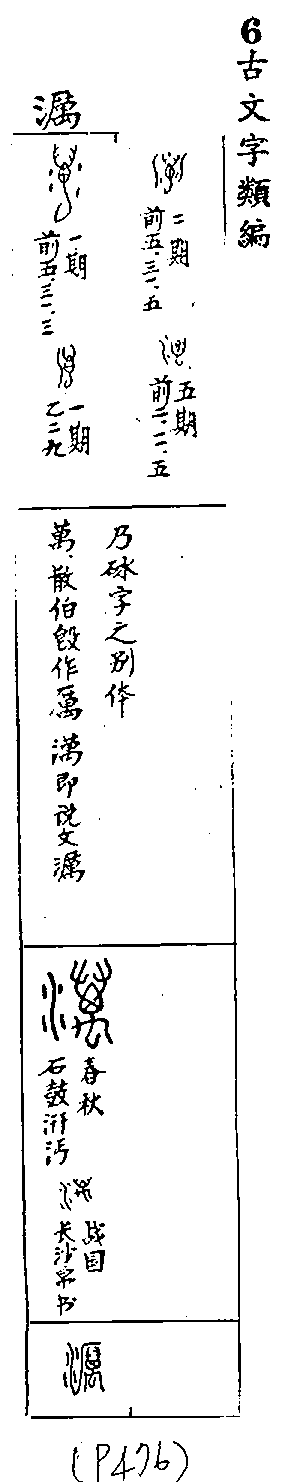 6古文字類編
濿
一期
前五.三一.三
一期
乙二一九
二期
前五.三一.五
五期
前二.一一.五
乃砅字之别体
萬,散伯𣪘作厲 澫即説文濿
春秋
石鼓汧沔
战国
长沙帛书
濿
(P476)